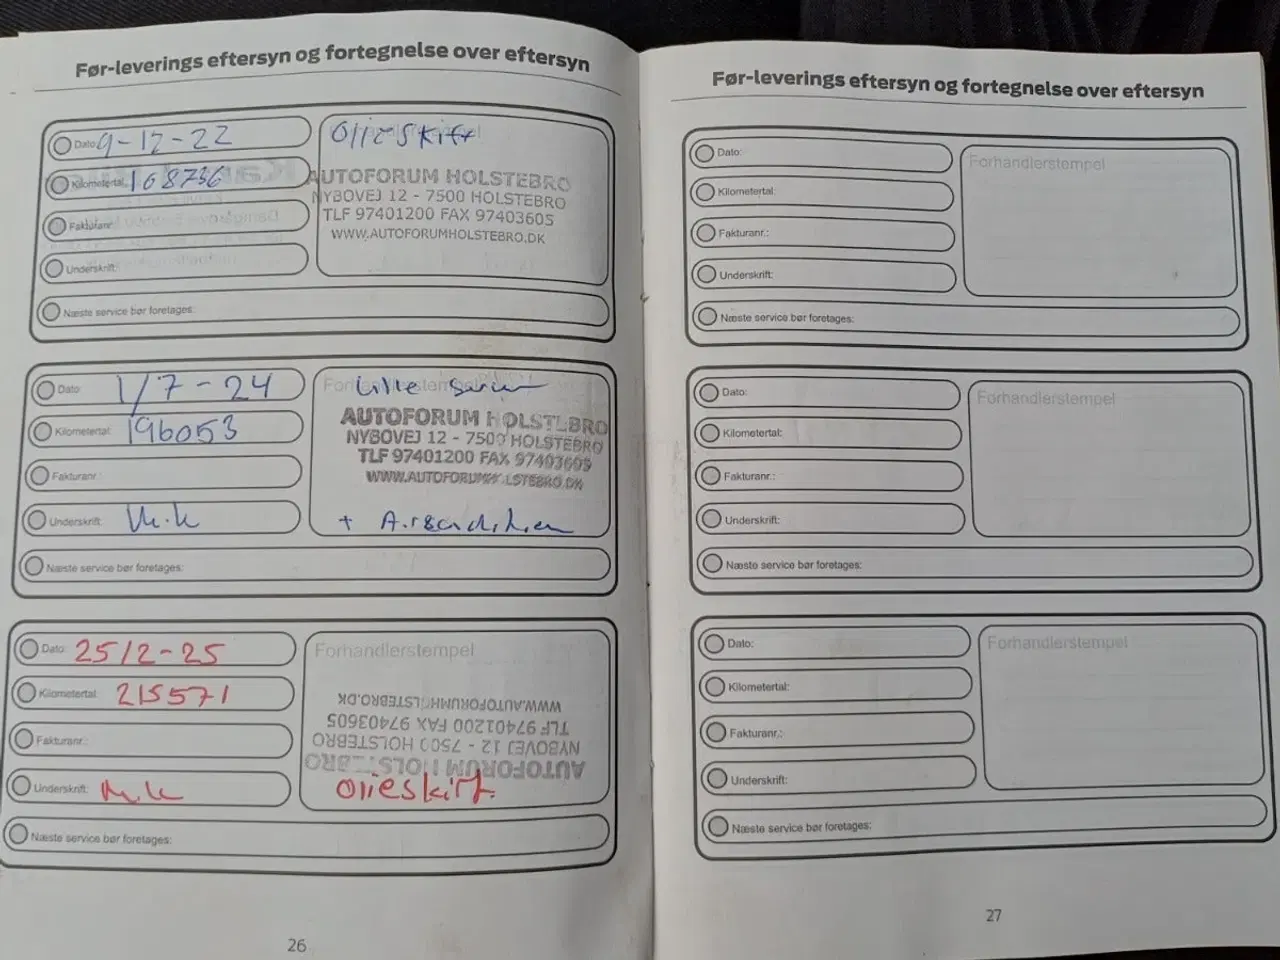 Før-leverings eftersyn og fortegnelse over eftersyn
Dato: 9-12-22
Kilometertal: 168736
Fakturanr.:
Underskrift:
Olieskift
AUTOFORUM HOLSTEBRO
NYBOVEJ 12 - 7500 HOLSTEBRO
TLF 97401200 FAX 97403605
WWW.AUTOFORUMHOLSTEBRO.DK
Næste service bør foretages:
Dato: 1/7-24
Kilometertal: 196053
Fakturanr.:
Underskrift:
Forhandlerstempel
Lille
AUTOFORUM HOLSTEBRO
NYBOVEJ 12 - 7500 HOLSTEBRO
TLF 97401200 FAX 97403605
WWW.AUTOFORUMHOLSTEBRO.DK
+
Næste service bør foretages:
Dato: 25/2-25
Kilometertal: 215571
Fakturanr.:
Underskrift:
Forhandlerstempel
AUTOFORUM HOLSTEBRO
NYBOVEJ 12 - 7500 HOLSTEBRO
TLF 97401200 FAX 97403605
WWW.AUTOFORUMHOLSTEBRO.DK
Olieskift
Næste service bør foretages:
26
Før-leverings eftersyn og fortegnelse over eftersyn
Dato:
Kilometertal:
Fakturanr.:
Underskrift:
Forhandlerstempel
Næste service bør foretages:
Dato:
Kilometertal:
Fakturanr.:
Underskrift:
Forhandlerstempel
Næste service bør foretages:
Dato:
Kilometertal:
Fakturanr.:
Underskrift:
Forhandlerstempel
Næste service bør foretages:
27